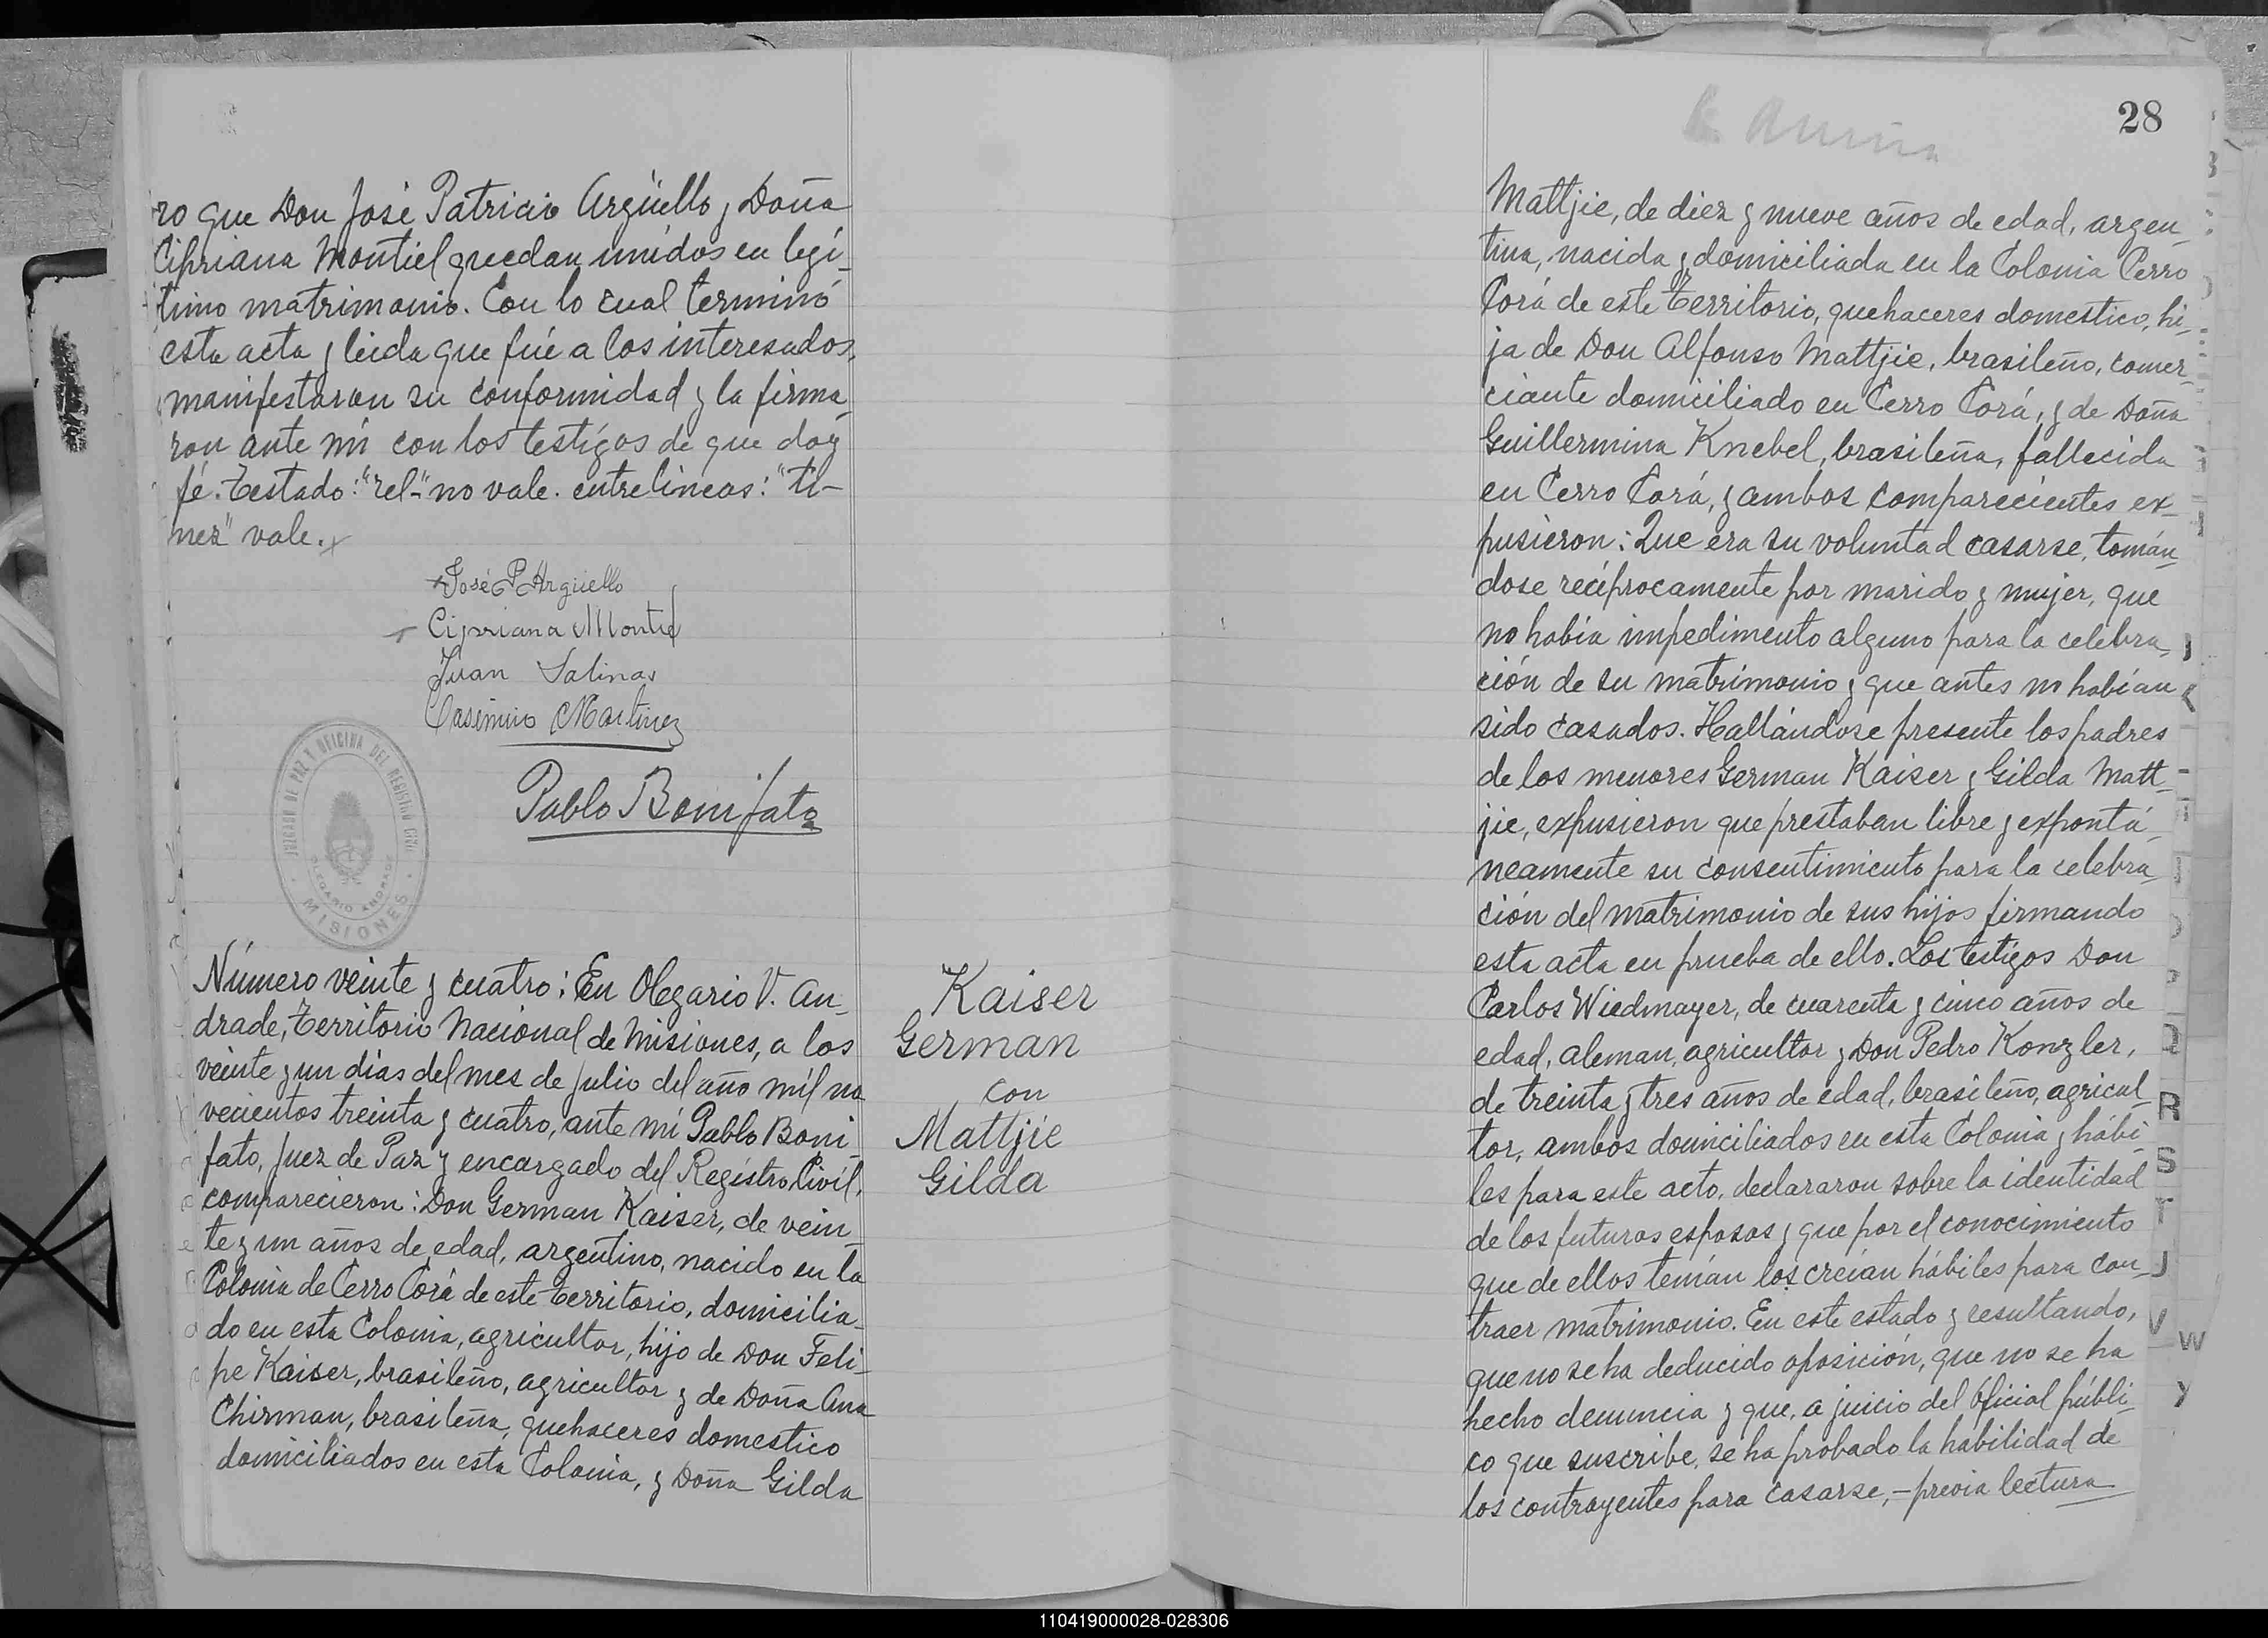 ro que Don José Patricio Argüello y Doña
Cipriana Montiel quedan unidos en legí-
timo matrimonio. Con lo cual terminó
esta acta y leida que fué a los interesados,
manifestaron su conformidad y la firma-
ron ante mí con los testigos de que doy
fé. Testado: "rel-" no vale. entrelineas: "ti-
nez" vale.
José P Argüello
Cipriana Montiel
Juan Salinas
Casimiro Martinez
Pablo Bonifato
JUZGADO DE PAZ Y OFICINA DEL REGISTRO CIVIL
OLEGARIO ANDRADE
MISIONES
Número veinte y cuatro: En Olegario V. An-
drade, Territorio Nacional de Misiones, a los
veinte y un dias del mes de Julio del año mil no-
vecientos treinta y cuatro, ante mí Pablo Boni-
fato, Juez de Paz y encargado del Registro Civil,
comparecieron: Don German Kaiser, de vein-
te y un años de edad, argentino, nacido en la
Colonia de Cerro Corá de este territorio, domicilia-
do en esta Colonia, agricultor, hijo de Don Feli-
pe Kaiser, brasileño, agricultor y de Doña Ana
Chirman, brasileña, quehaceres domestico
domiciliados en esta Colonia, y Doña Gilda
Kaiser
German
con
Mattjie
Gilda
28
Mattjie, de diez y nueve años de edad, argen-
tina, nacida y domiciliada en la Colonia Cerro
Corá de este territorio, quehaceres domestico, hi-
ja de Don Alfonso Mattjie, brasileño, comer-
ciante domiciliado en Cerro Corá, y de Doña
Guillermina Knebel, brasileña, fallecida
en Cerro Corá, y ambos comparecientes ex-
pusieron: Que era su voluntad casarse, tomán-
dose recíprocamente por marido y mujer, que
no había impedimento alguno para la celebra-
ción de su matrimonio y que antes no habían
sido casados. Hallándose presente los padres
de los menores German Kaiser y Gilda Matt-
jie, expusieron que prestaban libre y expontá-
neamente su consentimiento para la celebra-
ción del matrimonio de sus hijos firmando
esta acta en prueba de ello. Los testigos Don
Carlos Wiedmayer, de cuarenta y cinco años de
edad, aleman, agricultor y Don Pedro Konzler,
de treinta y tres años de edad, brasileño, agricul-
tor, ambos domiciliados en esta Colonia y hábi-
les para este acto, declararon sobre la identidad
de los futuros esposos y que por el conocimiento
que de ellos tenían los creían hábiles para con-
traer matrimonio. En este estado y resultando,
que no se ha deducido oposición, que no se ha
hecho denuncia y que, a juicio del oficial públi-
co que suscribe, se ha probado la habilidad de
los contrayentes para casarse,- previa lectura
R
S
T
J
V
W
Y
110419000028-028306